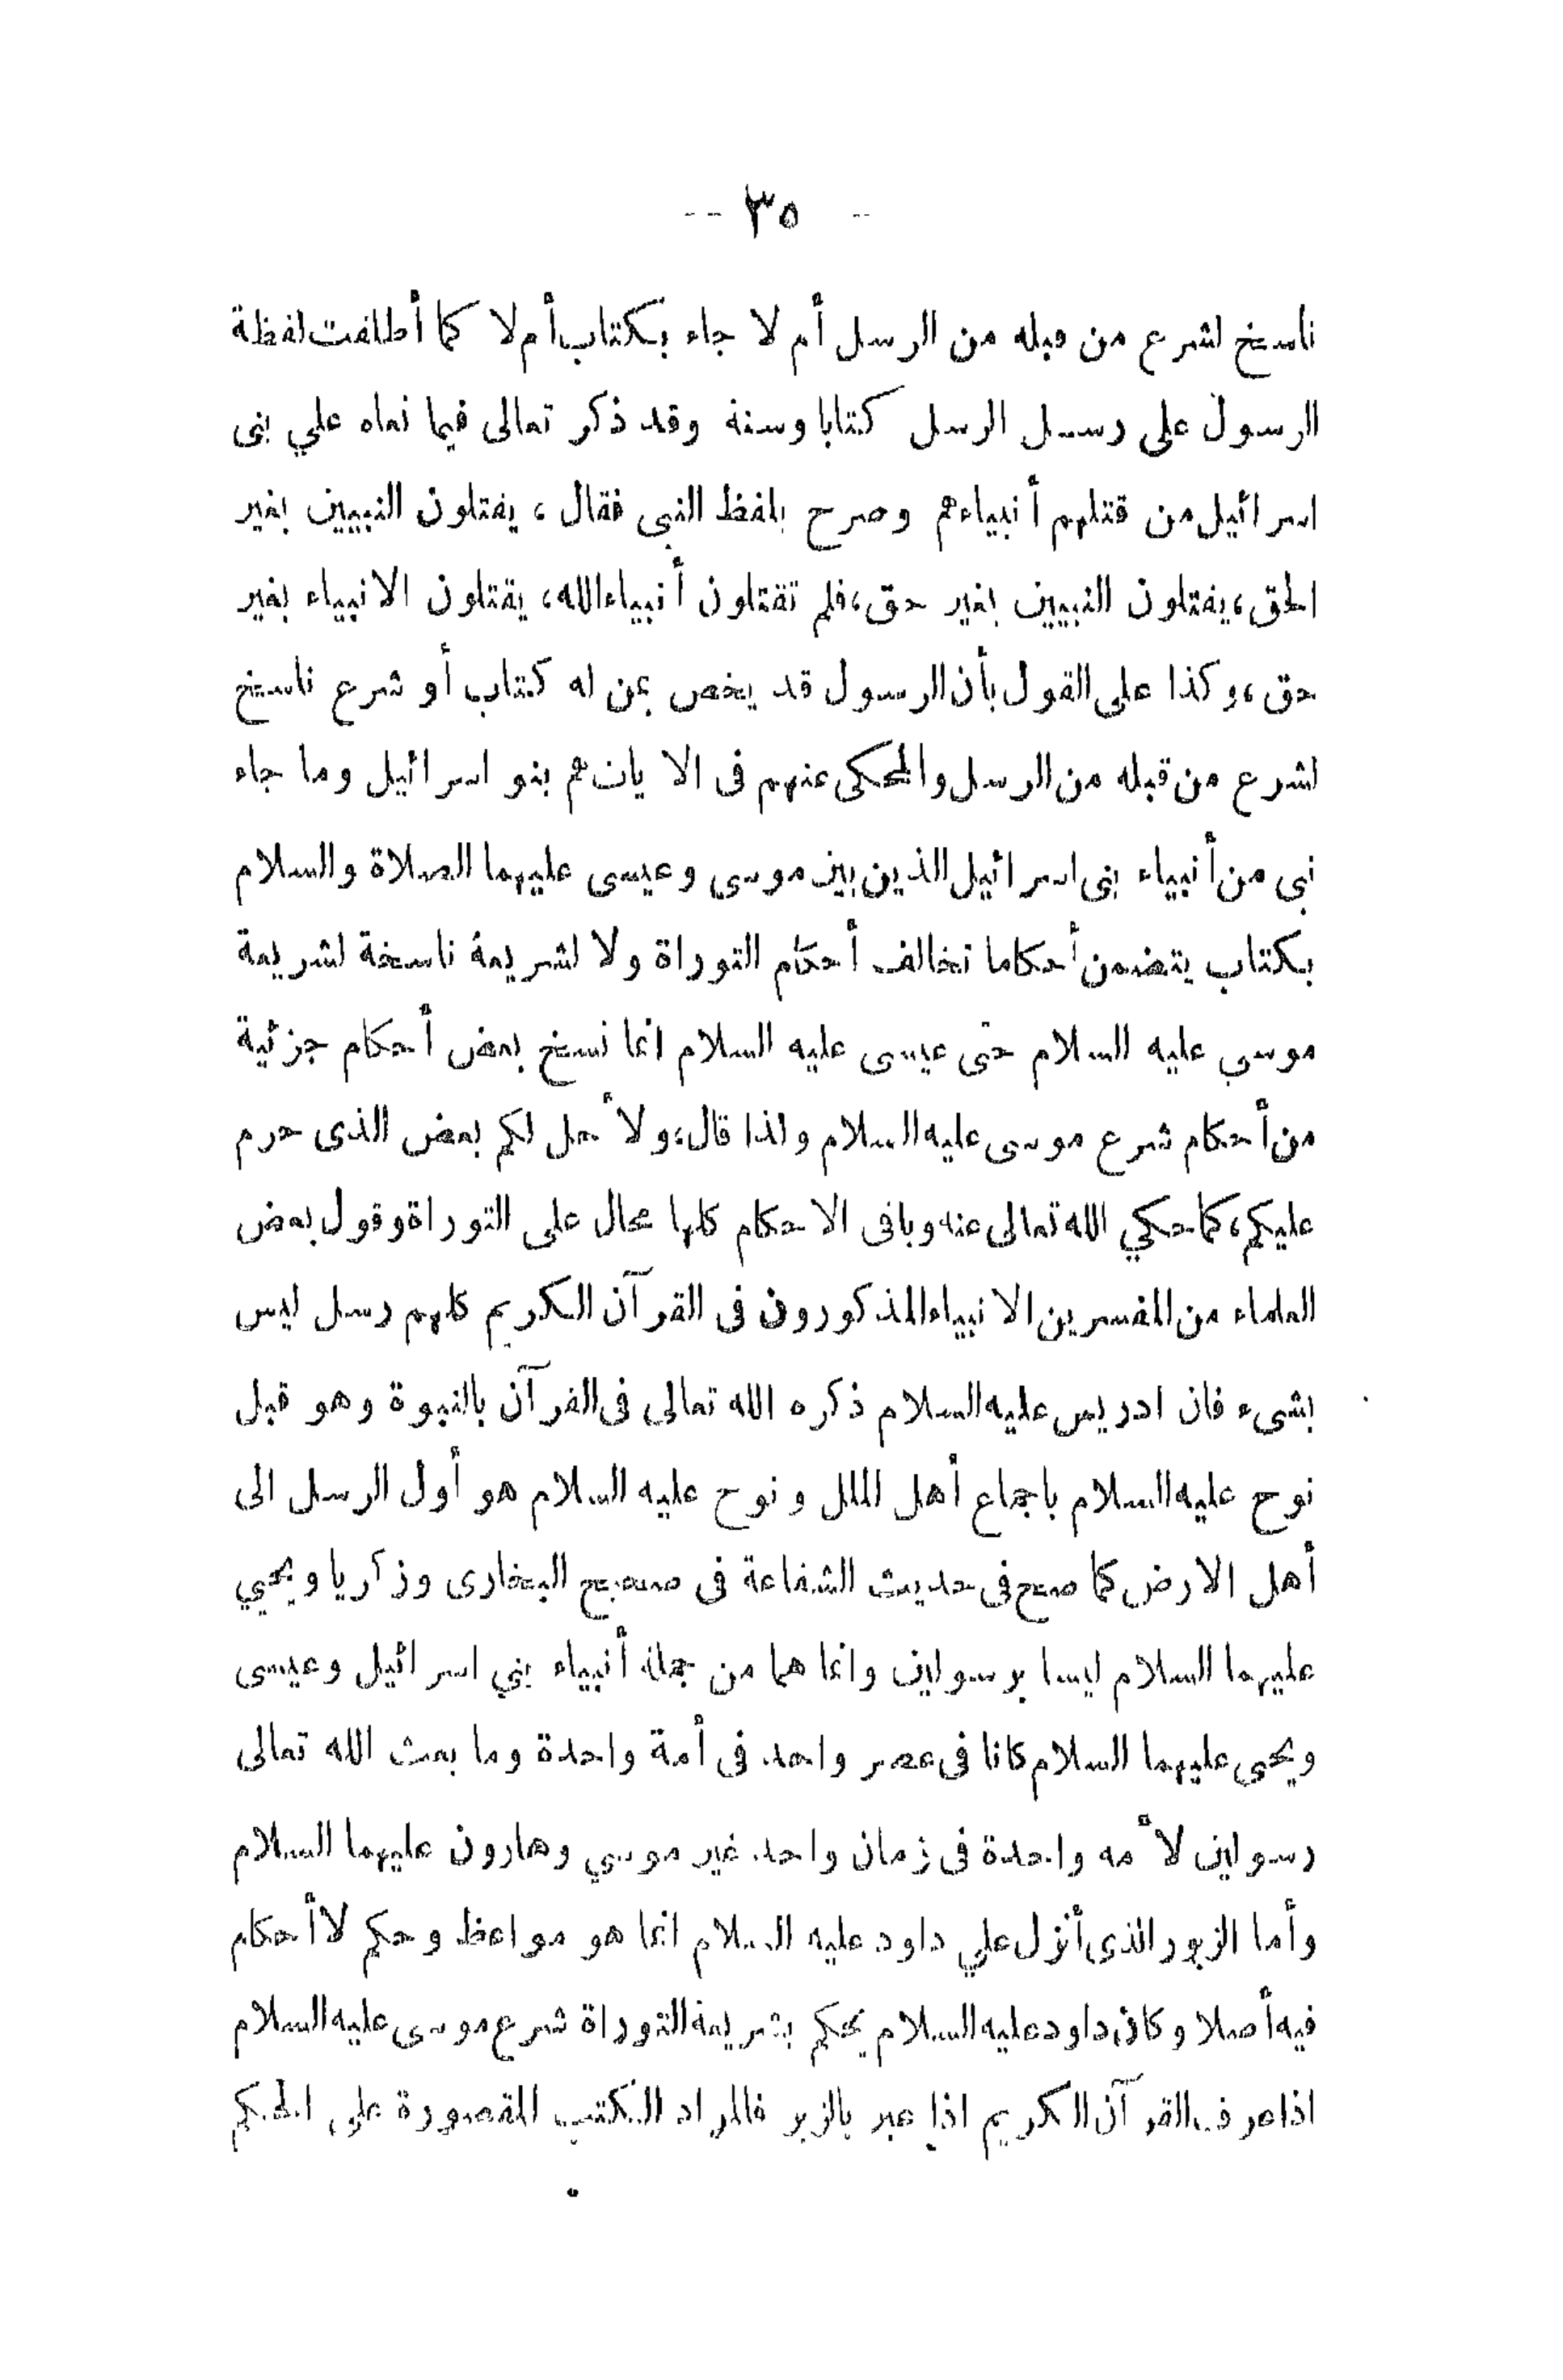 -- ٣٥ --
ناسخ لشرع من قبله من الرسل أم لا جاء بكتاب أم لا كما أطلقت لفظة
الرسول على رسل الرسل كتابا وسنة وقد ذكر تعالى فيما نعاه علي بنى
اسرائيل من قتلهم أنبياءهم وصرح بلفظ النبى فقال ، يقتلون النبيين بغير
الحق ، يقتلون النبيين بغير حق ، فلم تقتلون أنبياء الله ، يقتلون الانبياء بغير
حق ، وكذا على القول بأن الرسول قد يخص بمن له كتاب أو شرع ناسخ
لشرع من قبله من الرسل والمحكى عنهم فى الايات هم بنو اسرائيل وما جاء
نبى من أنبياء بنى اسرائيل الذين بين موسى وعيسى عليهما الصلاة والسلام
بكتاب يتضمن أحكاما تخالف أحكام التوراة ولا لشريعة ناسخة لشريعة
موسي عليه السلام حتى عيسى عليه السلام انما نسخ بعض أحكام جزئية
من أحكام شرع موسى عليه السلام ولذا قال ، ولأحل لكم بعض الذى حرم
عليكم ، كما حكي الله تعالى عنه وباقى الاحكام كلها محال على التوراة وقول بعض
العلماء من المفسرين الانبياء المذكورون فى القرآن الكريم كلهم رسل ليس
بشىء فان ادريس عليه السلام ذكره الله تعالى فى القرآن بالنبوة وهو قبل
نوح عليه السلام باجماع أهل الملل ونوح عليه السلام هو أول الرسل الى
أهل الارض كما صح فى حديث الشفاعة فى صحيح البخارى وزكريا ويحيي
عليهما السلام ليسا برسولين وانما هما من جملة أنبياء بني اسرائيل وعيسى
ويحى عليهما السلام كانا فى عصر واحد فى أمة واحدة وما بعث الله تعالى
رسولين لأمه واحدة فى زمان واحد غير موسي وهارون عليهما السلام
وأما الزبور الذى أنزل علي داود عليه السلام انما هو مواعظ وحكم لا أحكام
فيه أصلا وكان داود عليه السلام يحكم بشريعة التوراة شرع موسى عليه السلام
اذا عرف القرآن الكريم اذا عبر بالزبر فالمراد الكتب المقصورة على الحكم